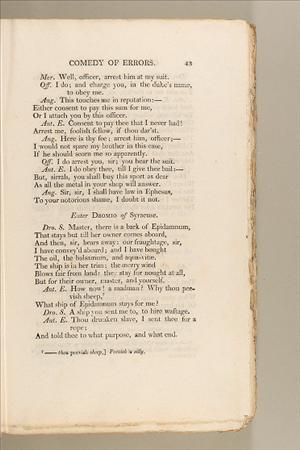 COMEDY OF ERRORS. 43
Mer. Well, officer, arrest him at my suit.
Off. I do; and charge you, in the duke's name,
to obey me.
Ang. This touches me in reputation:—
Either consent to pay this sum for me,
Or I attach you by this officer.
Ant. E. Consent to pay thee that I never had!
Arrest me, foolish fellow, if thou dar'st.
Ang. Here is thy fee; arrest him, officer;—
I would not spare my brother in this case,
If he should scorn me so apparently.
Off. I do arrest you, sir; you hear the suit.
Ant. E. I do obey thee, till I give thee bail:—
But, sirrah, you shall buy this sport as dear
As all the metal in your shop will answer.
Ang. Sir, sir, I shall have law in Ephesus,
To your notorious shame, I doubt it not.
Enter DROMIO of Syracuse.
Dro. S. Master, there is a bark of Epidamnum,
That stays but till her owner comes aboard,
And then, sir, bears away: our fraughtage, sir,
I have convey'd aboard; and I have bought
The oil, the balsamum, and aqua-vitæ.
The ship is in her trim; the merry wind
Blows fair from land: they stay for nought at all,
But for their owner, master, and yourself.
Ant. E. How now! a madman? Why thou pee-
vish sheep,¹
What ship of Epidamnum stays for me?
Dro. S. A ship you sent me to, to hire waftage.
Ant. E. Thou drunken slave, I sent thee for a
rope;
And told thee to what purpose, and what end.
¹ —— thou peevish sheep,] Peevish is silly.